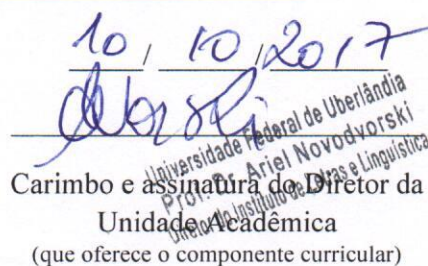 10 / 10 / 2017
Universidade Federal de Uberlândia
Prof. Dr. Ariel Novodvorski
Diretor do Instituto de Letras e Linguística
Carimbo e assinatura do Diretor da
Unidade Acadêmica
(que oferece o componente curricular)